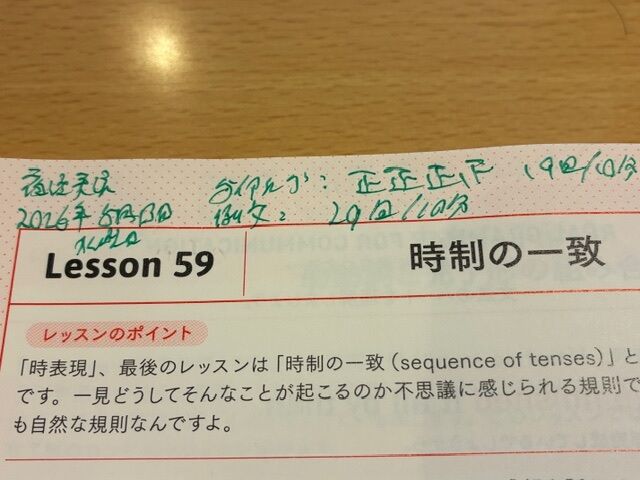 ダイアルグ: 正正正下 19回/10分
2026年5月13日 例文: 29回/10分
水曜日
Lesson 59 時制の一致
レッスンのポイント
「時表現」、最後のレッスンは「時制の一致(sequence of tenses)」と
です。一見どうしてそんなことが起こるのか不思議に感じられる規則で
も自然な規則なんですよ。